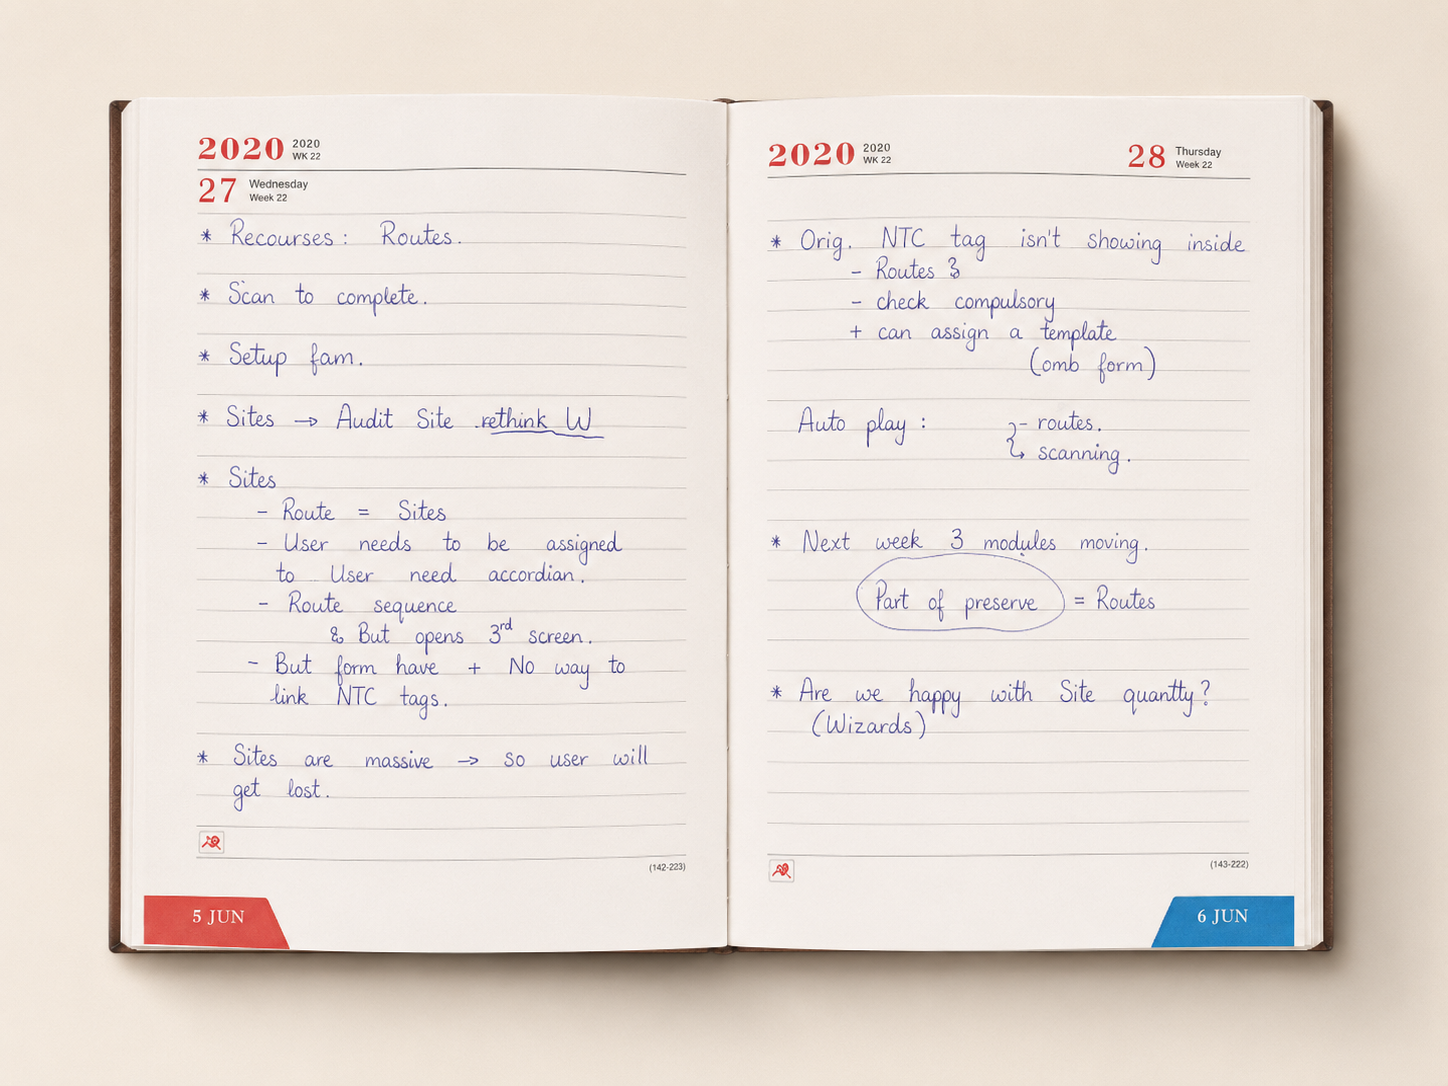 2020 2020
WK 22
27 Wednesday
Week 22
* Recourses: Routes.
* Scan to complete.
* Setup fam.
* Sites → Audit Site .rethink W
* Sites
- Route = Sites
- User needs to be assigned
to User need accordian.
- Route sequence
& But opens 3rd screen.
- But form have + No way to
link NTC tags.
* Sites are massive → so user will
get lost.
(142-223)
5 JUN
2020 2020
WK 22
28 Thursday
Week 22
* Orig. NTC tag isn't showing inside
- Routes &
- check compulsory
+ can assign a template
(omb form)
Auto play : - routes.
↳ scanning.
* Next week 3 modules moving.
Part of preserve = Routes
* Are we happy with Site quantty?
(Wizards)
(143-222)
6 JUN